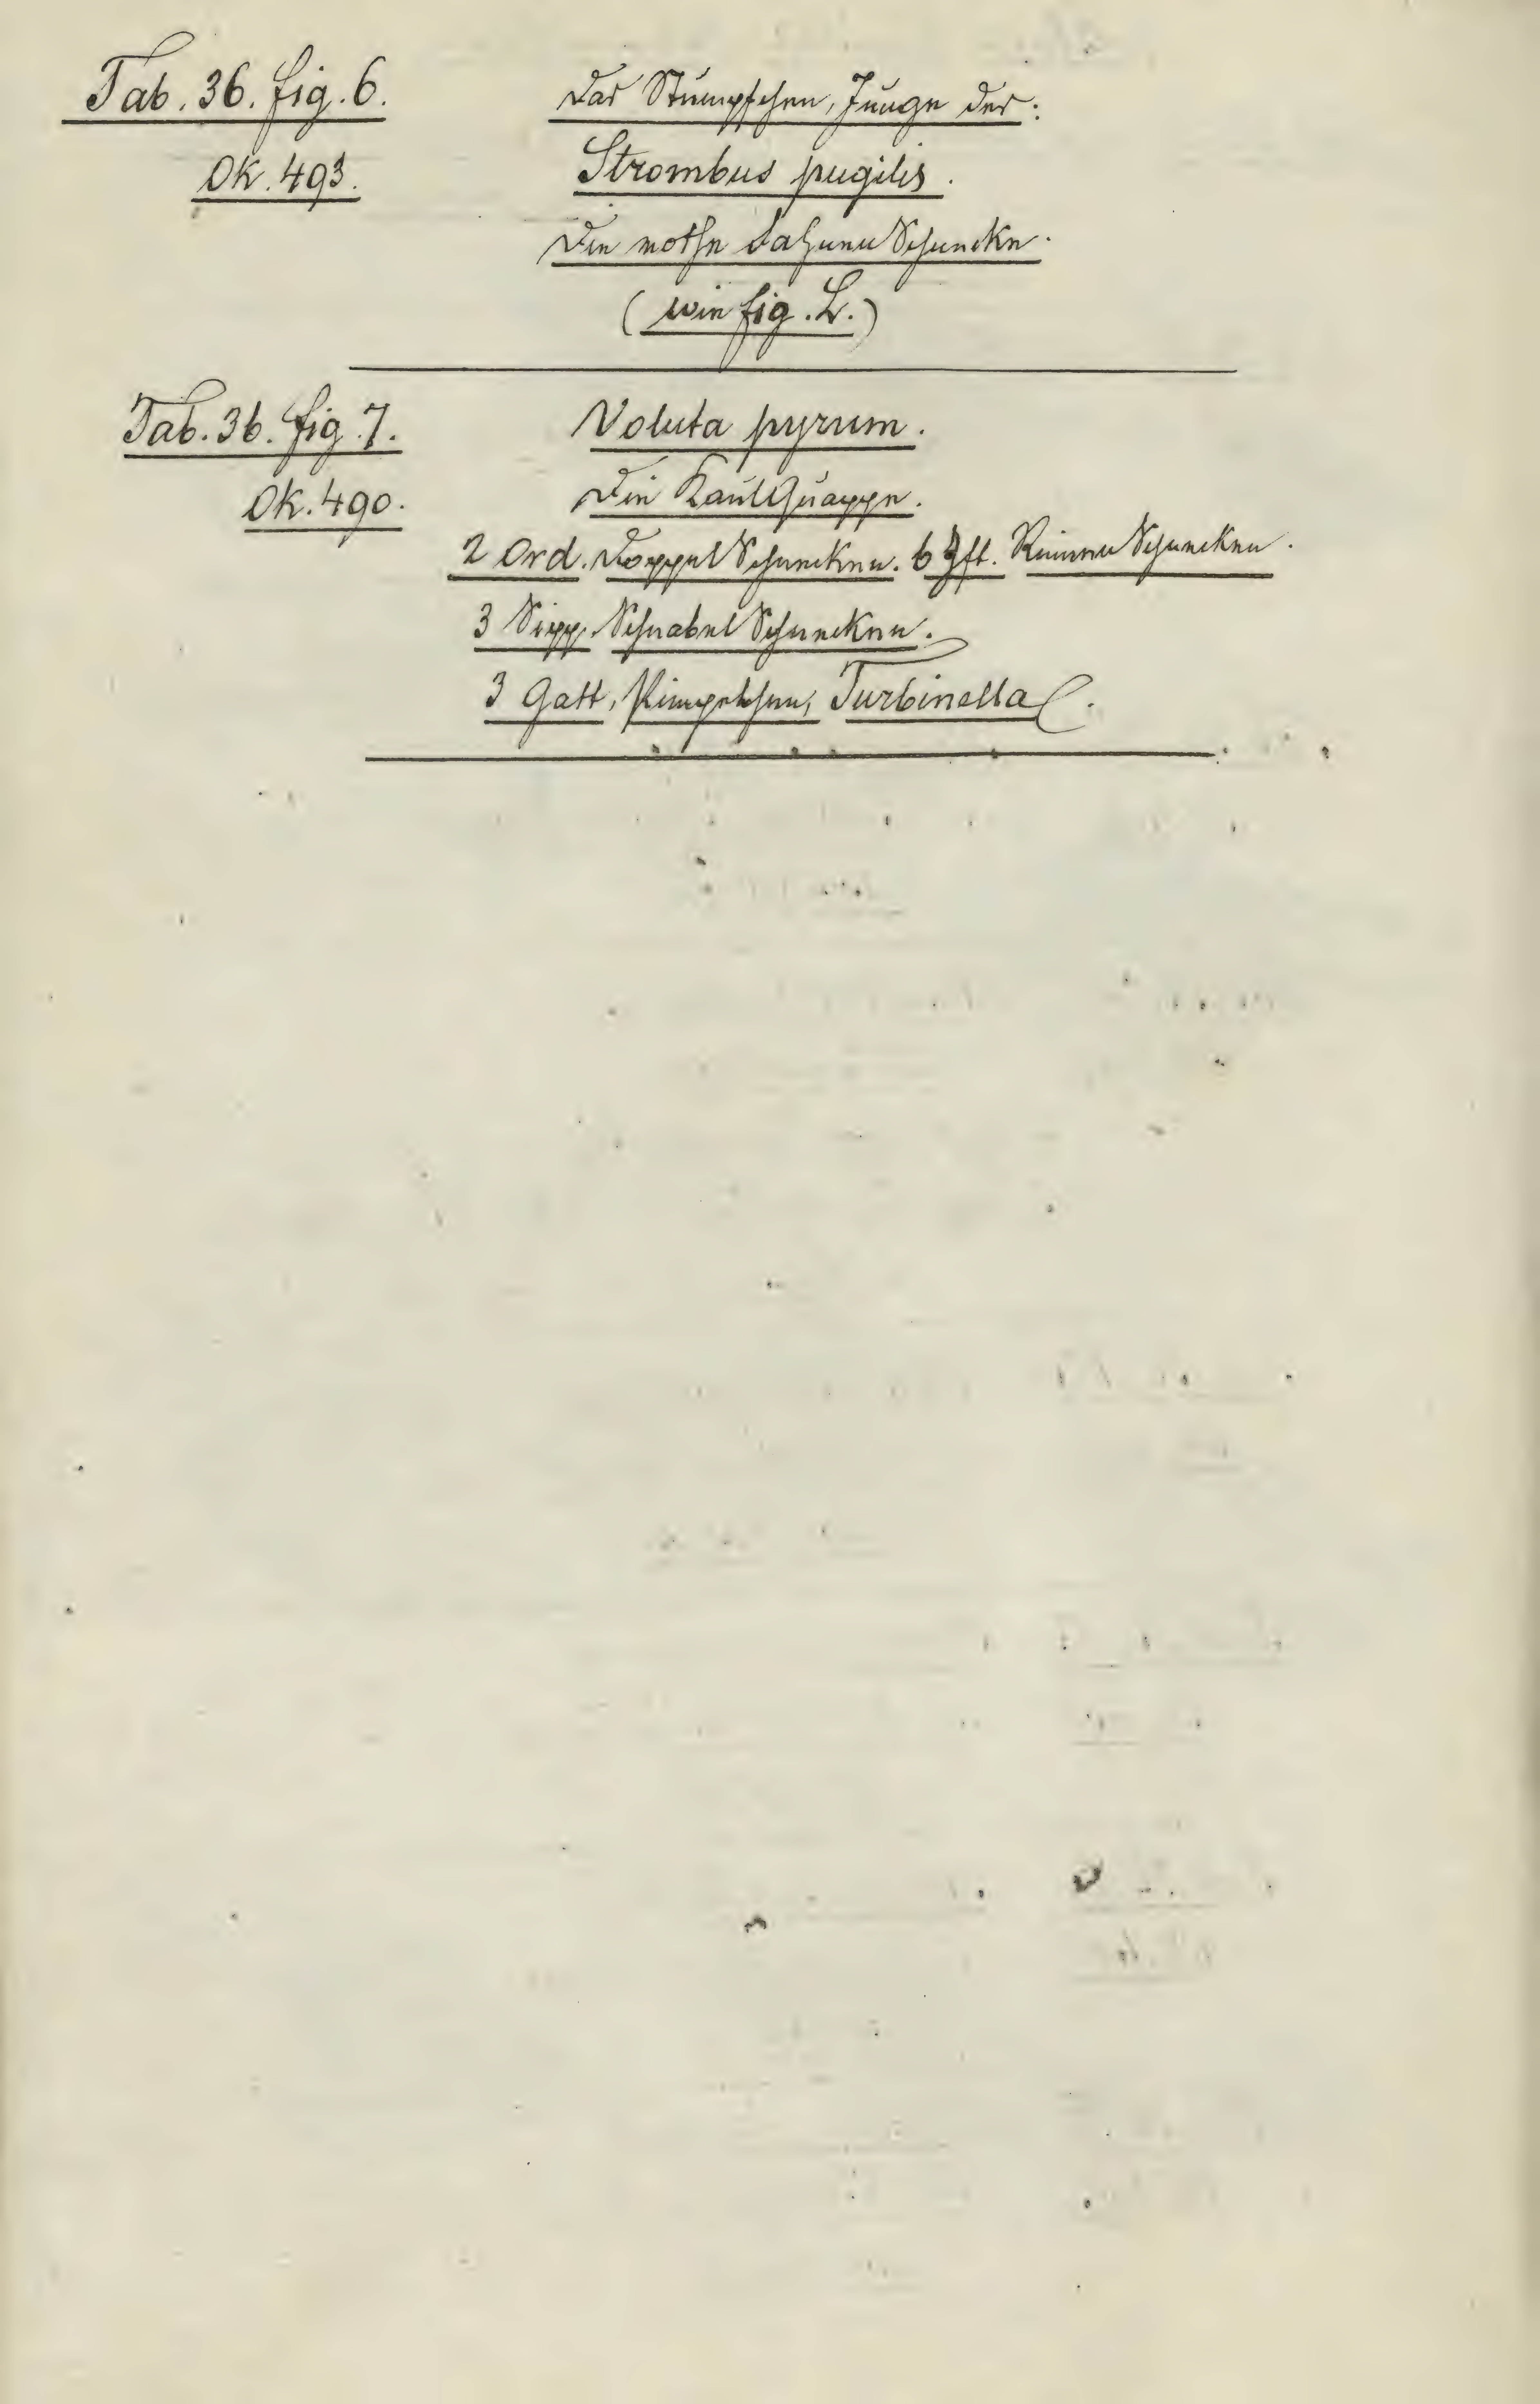 Tab. 36. fig. 6.
Das Stümpfchen, Junge der:
Ok. 493.
Strombus pugilis.
Die rothe FahnenSchnecke.
(wie fig. L.)
Tab. 36. fig. 7.
Voluta pyrum.
Ok. 490.
Die KaulQuappe.
2 Ord. DoppelSchnecken. 6 Zft. RinnenSchnecken.
3 Sipp. SchnabelSchnecken.
3 Gatt, Turbinella.